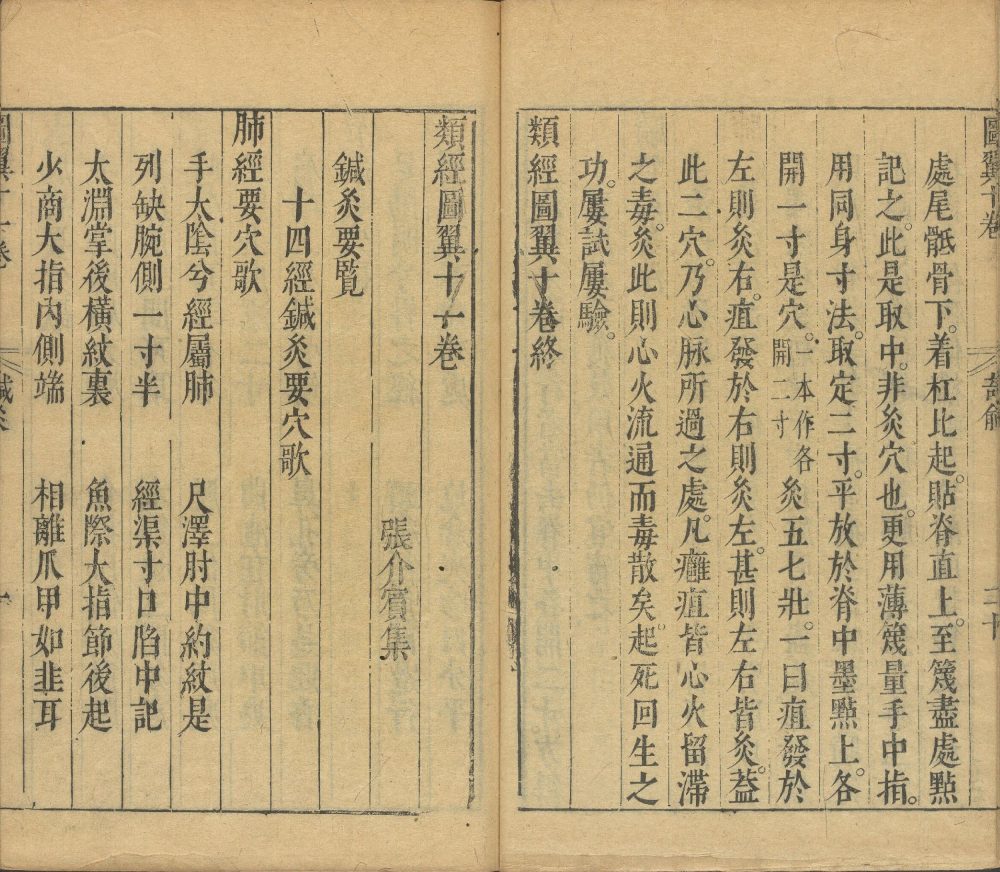 圖翼十卷 奇俞 二十
處尾骶骨下。着杠比起。貼脊直上。至篾盡處點
記之。此是取中。非灸穴也。更用薄篾量手中指。
用同身寸法。取定二寸。平放於脊中墨點上。各
開一寸是穴。一本作各開二寸 灸五七壯。一曰疽發於
左則灸右。疽發於右則灸左。甚則左右皆灸。葢
此二穴。乃心脉所過之處。凡癰疽皆心火留滯
之毒。灸此則心火流通而毒散矣。起死回生之
功。屢試屢驗。
類經圖翼十卷終
類經圖翼十一卷
張介賓集
鍼灸要覧
十四經鍼灸要穴歌
肺經要穴歌
手太陰兮經屬肺 尺澤肘中約紋是
列缺腕側一寸半 經渠寸口陷中記
太淵掌後橫紋裏 魚際大指節後起
少商大指內側端 相離爪甲如韭耳
圖翼十一卷 鍼灸 一